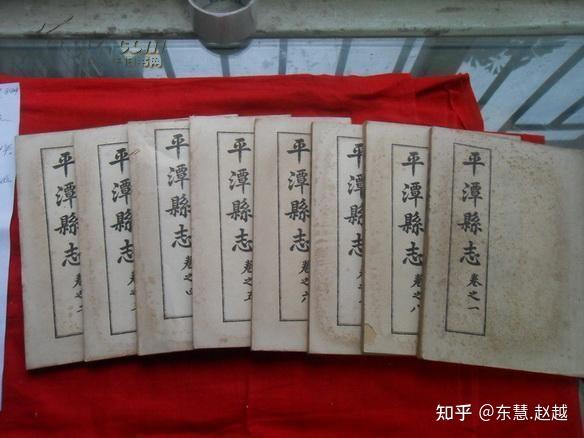 平潭縣志 卷之二
平潭縣志 卷之
平潭縣志 卷之四
平潭縣志 卷之五
平潭縣志 卷之六
平潭縣志 卷之
平潭縣志 卷之八
平潭縣志 卷之一
知乎 @东慧.赵越